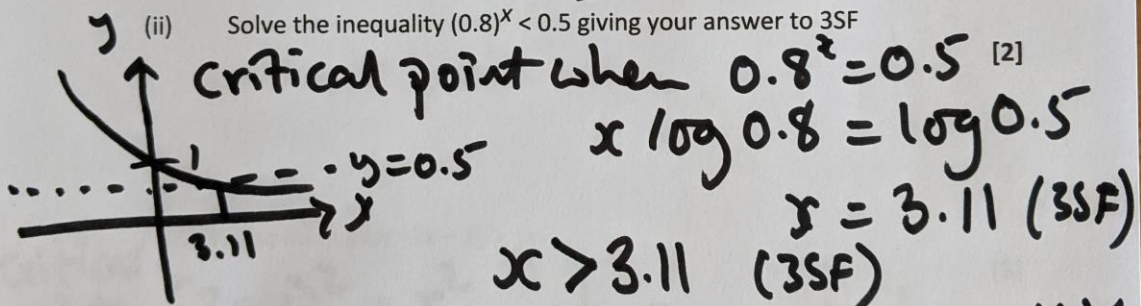 (ii) Solve the inequality (0.8)ˣ < 0.5 giving your answer to 3SF
[2]
critical point when 0.8ˣ = 0.5
x log 0.8 = log 0.5
x = 3.11 (3SF)
x > 3.11 (3SF)
y
1
y=0.5
x
3.11